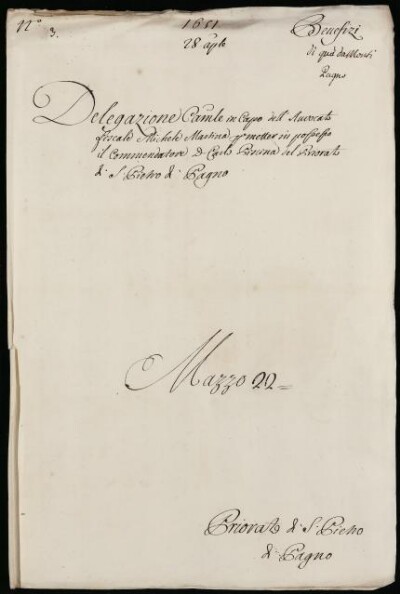 N° 3.
1651
28 aple
Benefizi
di quà da Monti
Pagno
Delegazione Camle in Capo dell' Avvocato
fiscale Michele Martina p metter in possesso
il Commendatore D. Carlo del Priorato
di S. Pietro di Pagno
Mazzo 22 =
Priorato di S. Pietro
di Pagno